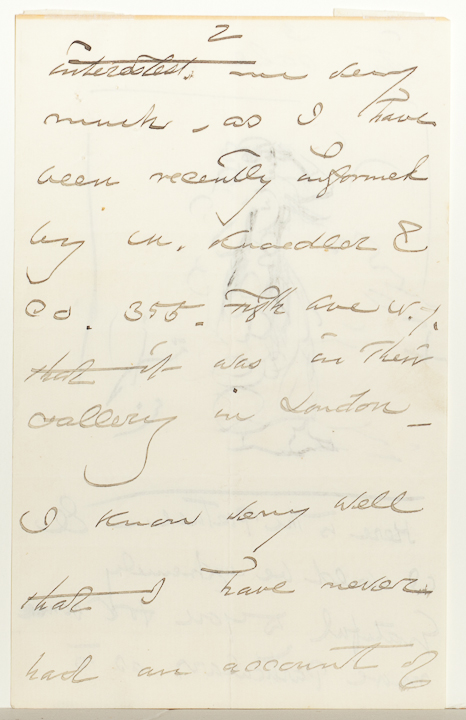 2
interested me very
much, as I have
been recently informed
by M. Knoedler &
Co. 355. Fifth Ave N.Y.
that it was in their
Gallery in London_
I know very well
that I have never
had an account of